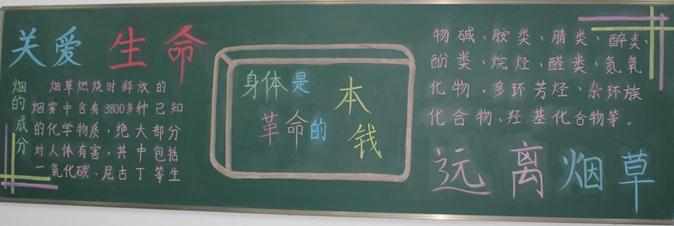 关爱 生命
烟的成分
烟草燃烧时释放的
烟雾中含有3800多种已知
的化学物质，绝大部分
对人体有害，其中包括
一氧化碳、尼古丁等生
身体是
革命的
本钱
物碱、胺类、腈类、醇类、
酚类、烷烃、醛类、氮氧
化物、多环芳烃、杂环族
化合物、羟基化合物等。
远离烟草